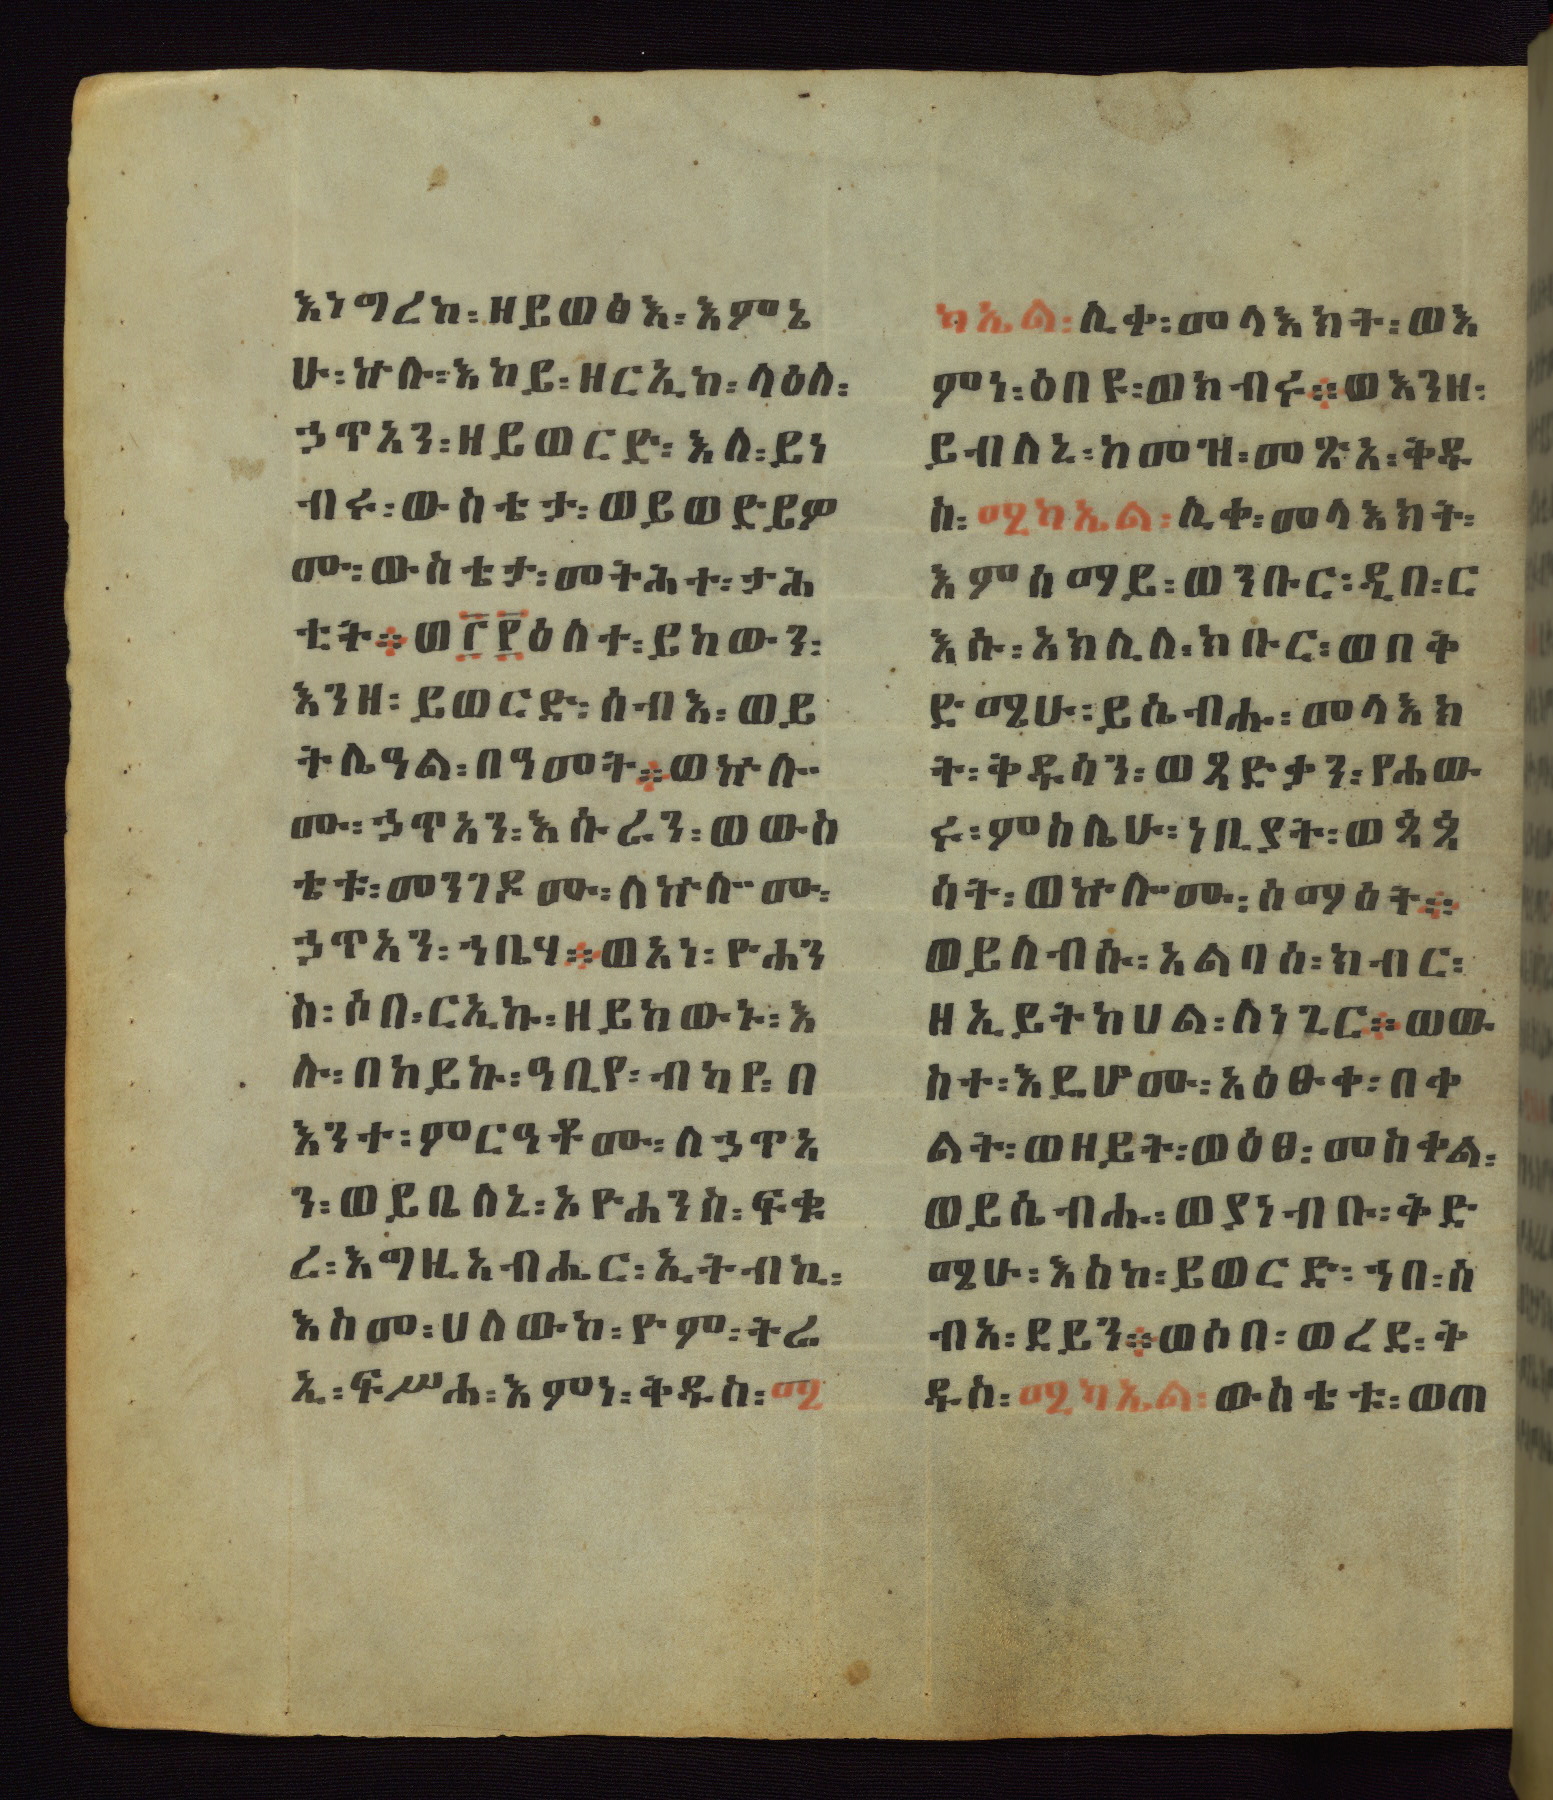 እነግረከ፡ ዘይወፅእ፡ እምኔ
ሁ፡ ኵሉ፡ እከይ፡ ዘርኢከ፡ ላዕለ፡
ኃጥአን፡ ዘይወርድ፡ እለ፡ ይነ
ብሩ፡ ውስቴታ፡ ወይወድይዎ
ሙ፡ ውስቴታ፡ መትሕተ፡ ታሕ
ቲት። ወ፲፪ዕለተ፡ ይከውን፡
እንዘ፡ ይወርድ፡ ሰብእ፡ ወይ
ትሌዓል፡ በዓመት። ወኵሎ
ሙ፡ ኃጥአን፡ እሱራን፡ ወውስ
ቴቱ፡ መንገዶሙ፡ ለኵሎሙ፡
ኃጥአን፡ ኀቤሃ። ወአነ፡ ዮሐን
ስ፡ ሶበ፡ ርኢኩ፡ ዘይከውኑ፡ እ
ሉ፡ በከይኩ፡ ዓቢየ፡ ብካየ፡ በ
እንተ፡ ምርዓቶሙ፡ ለኃጥአ
ን፡ ወይቤለኒ፡ ኦዮሐንስ፡ ፍቁ
ረ፡ እግዚአብሔር፡ ኢትብኪ፡
እስመ፡ ሀለውከ፡ ዮም፡ ትሬ
ኢ፡ ፍሥሐ፡ እምነ፡ ቅዱስ፡ ሚ
ካኤል፡ ሊቀ፡ መላእክት፡ ወእ
ምነ፡ ዕበዩ፡ ወክብሩ። ወእንዘ፡
ይብለኒ፡ ከመዝ፡ መጽአ፡ ቅዱ
ስ፡ ሚካኤል፡ ሊቀ፡ መላእክት፡
እምሰማይ፡ ወንቡር፡ ዲበ፡ ር
እሱ፡ አክሊለ፡ ክቡር፡ ወበቅ
ድሜሁ፡ ይሴብሑ፡ መላእክ
ት፡ ቅዱሳን፡ ወጻድቃን፡ የሐው
ሩ፡ ምስሌሁ፡ ነቢያት፡ ወጳጳ
ሳት፡ ወኵሎሙ፡ ሰማዕት።
ወይለብሱ፡ አልባሰ፡ ክብር፡
ዘኢይትከሀል፡ ለነጊር። ወው
ስተ፡ እደሆሙ፡ አዕፁቀ፡ በቀ
ልት፡ ወዘይት፡ ወዕፀ፡ መስቀል፡
ወይሴብሑ፡ ወያነብቡ፡ ቅድ
ሜሁ፡ እስከ፡ ይወርድ፡ ኀበ፡ ሰ
ብአ፡ ደይን። ወሶበ፡ ወረደ፡ ቅ
ዱስ፡ ሚካኤል፡ ውስቴቱ፡ ወጠ